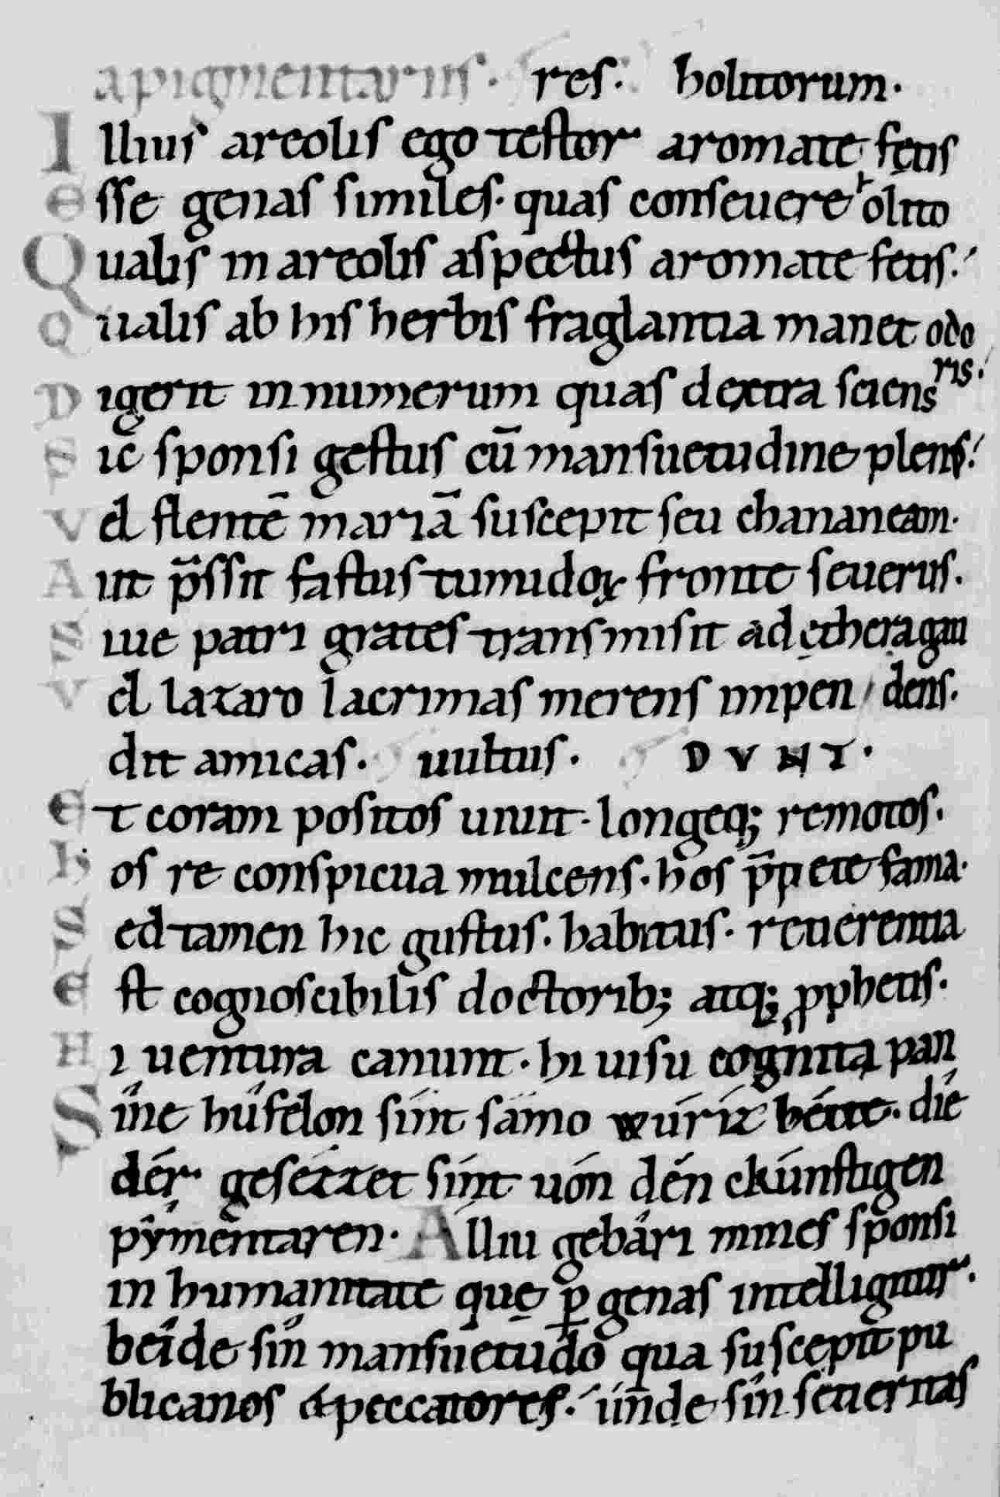 apigmentariis. res. holitorum.
Illius areolis ego testor aromate fetis
esse genas similes. quas conseuere olito
Qualis in areolis aspectus aromate fetis.
Qualis ab his herbis fraglantia manet odo
ris.
Digerit in numerum quas dextra sciens
Sic̄ sponsi gestus cū mansuetudine plenꝰ.
Vel flentē mariā suscepit seu chananeam.
Aut p̄ssit fastus tumidoꝝ fronte seuerus.
Siue patri grates transmisit ad ęthera gau
Vel lazaro lacrimas merens impen / dens.
dit amicas. uultus. DVNT.
Et coram positos uiuit. longeq; remotos.
hos re conspicua mulcens. hos p̄pete fama.
Sed tamen hic gustus. habitus. reuerentia
Est cognoscibilis doctorib; atq; ꝓphetis.
Hi uentura canunt. hi uisu cognita pan
Sine húfelon sint sámo wúrzbétte. die
dér gesézzet sint uón dén chúnstigen
pŷmentaren. Alliu gebâri mines sponsi
in humanitate quę ꝑ genas intelliguntur.
béide sin mansuetudo qua suscepit pu
blicanos & peccatores. únde sin seueritas